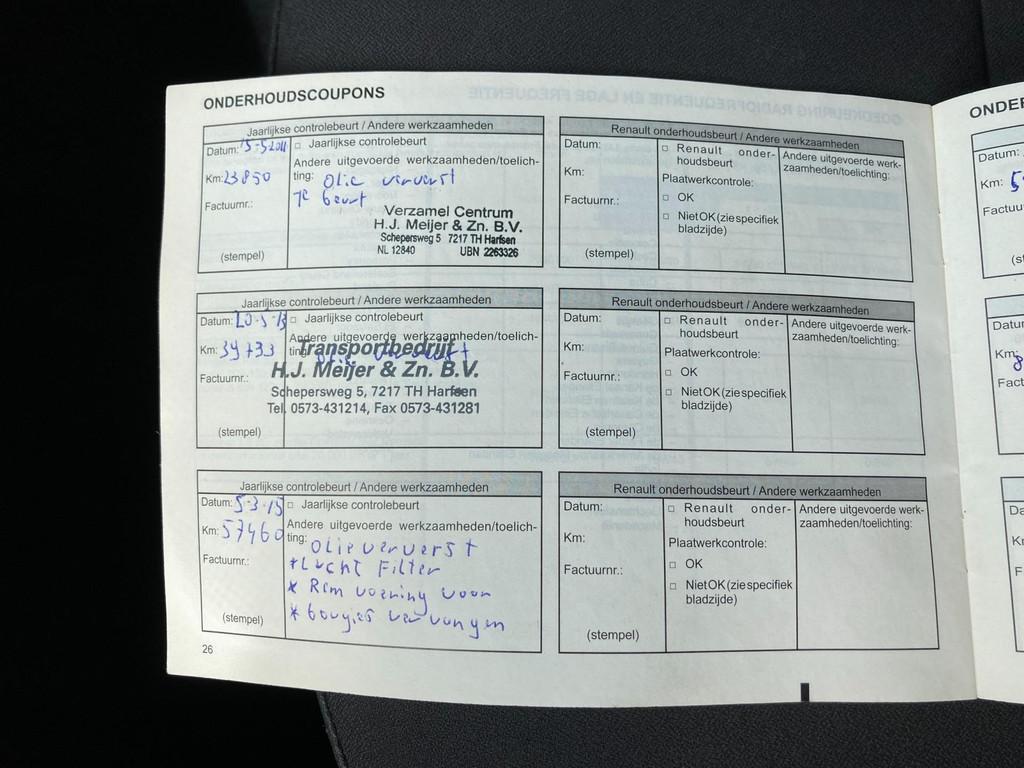 ONDERHOUDSCOUPONS
Jaarlijkse controlebeurt / Andere werkzaamheden
Datum: 15-5-2011
□ Jaarlijkse controlebeurt
Andere uitgevoerde werkzaamheden/toelich-
Km: 23850
ting: Olie ververst
1e beurt
Factuurnr.:
Verzamel Centrum
H.J. Meijer & Zn. B.V.
Schepersweg 5 7217 TH Harfsen
NL 12840 UBN 2263326
(stempel)
Renault onderhoudsbeurt / Andere werkzaamheden
Datum:
Km:
Factuurnr.:
(stempel)
□ Renault onder-
houdsbeurt
Plaatwerkcontrole:
□ OK
□ Niet OK (zie specifiek
bladzijde)
Andere uitgevoerde werk-
zaamheden/toelichting:
Jaarlijkse controlebeurt / Andere werkzaamheden
Datum: 20-5-13
□ Jaarlijkse controlebeurt
Andere uitgevoerde werkzaamheden/toelich-
Km: 39733
ting: olie ververst
Transportbedrijf
H.J. Meijer & Zn. B.V.
Factuurnr.:
Schepersweg 5, 7217 TH Harfsen
Tel. 0573-431214, Fax 0573-431281
(stempel)
Renault onderhoudsbeurt / Andere werkzaamheden
Datum:
Km:
Factuurnr.:
(stempel)
□ Renault onder-
houdsbeurt
Plaatwerkcontrole:
□ OK
□ Niet OK (zie specifiek
bladzijde)
Andere uitgevoerde werk-
zaamheden/toelichting:
Jaarlijkse controlebeurt / Andere werkzaamheden
Datum: 5-3-15
□ Jaarlijkse controlebeurt
Andere uitgevoerde werkzaamheden/toelich-
Km: 57460
ting: olie ververst
* Lucht Filter
Factuurnr.:
* Rem voering voor
* bougies vervangen
(stempel)
Renault onderhoudsbeurt / Andere werkzaamheden
Datum:
Km:
Factuurnr.:
(stempel)
□ Renault onder-
houdsbeurt
Plaatwerkcontrole:
□ OK
□ Niet OK (zie specifiek
bladzijde)
Andere uitgevoerde werk-
zaamheden/toelichting:
26
Datum:
Km: